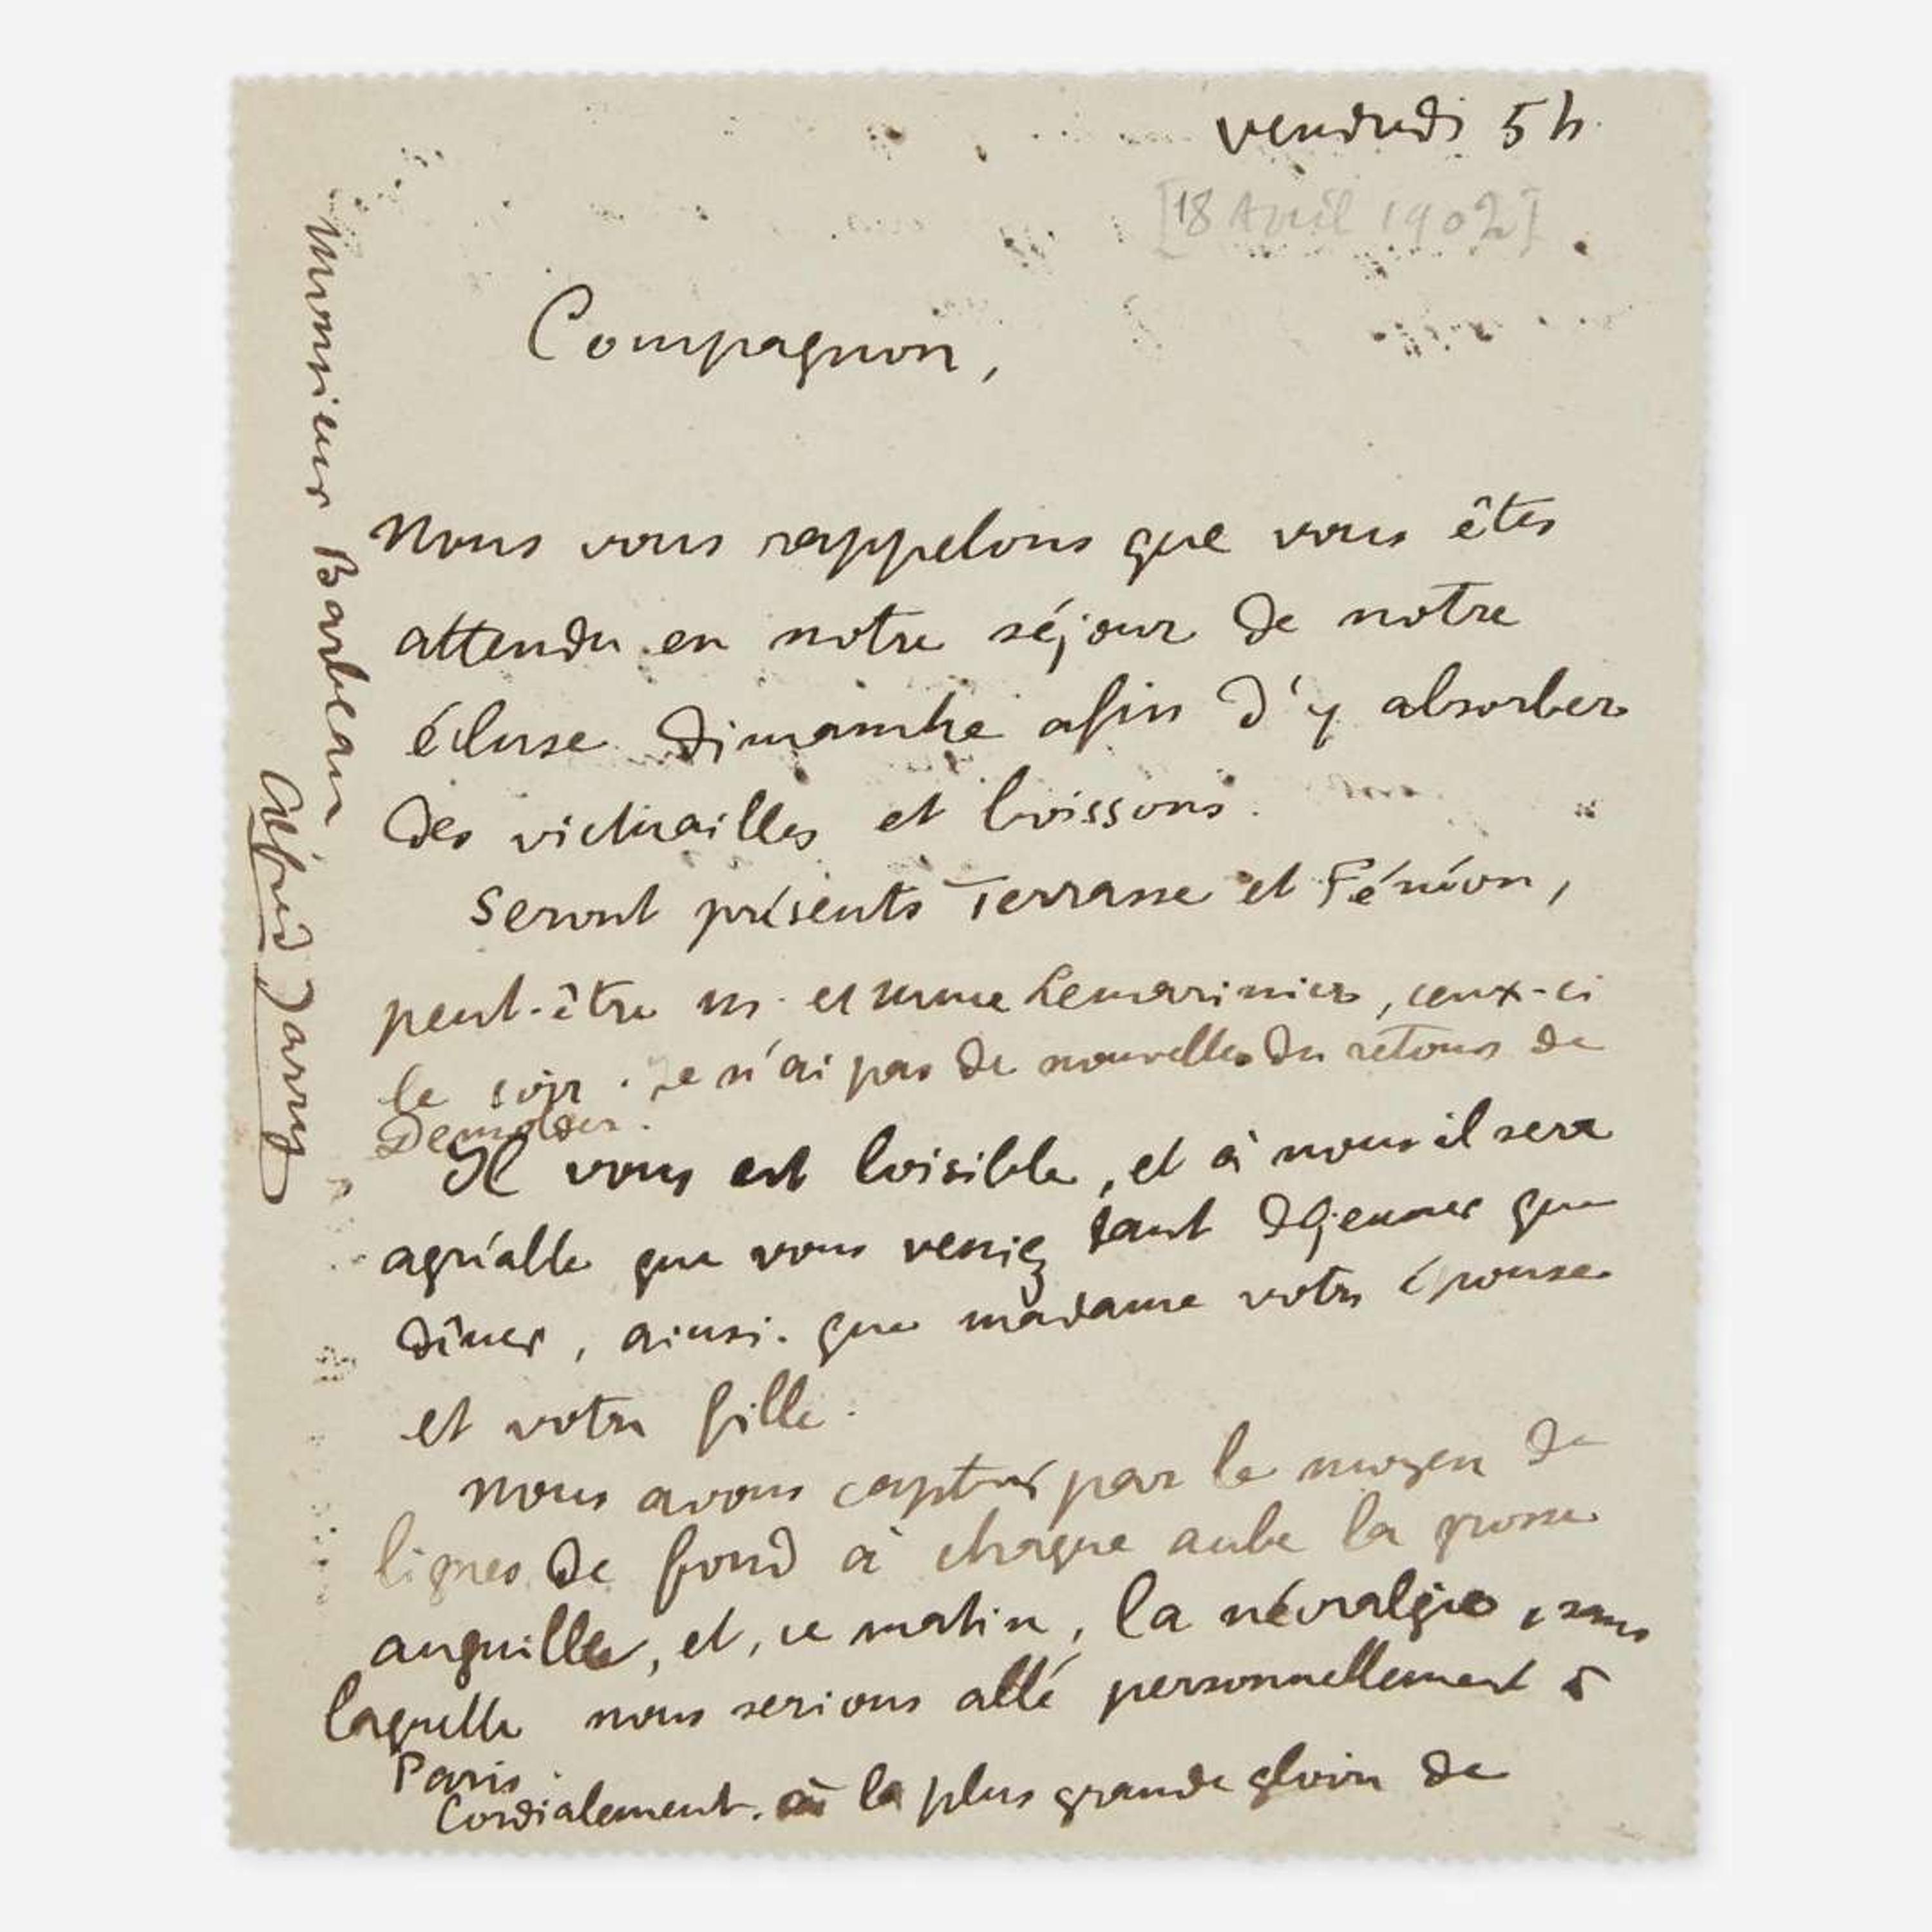 vendredi 5 h.
[18 Avril 1902]
Compagnon,
Nous vous rappelons que vous êtes
attendu en notre séjour de notre
écluse dimanche afin d'y absorber
des victuailles et boissons.
Seront présents Terrasse et Fénéon,
peut-être m. et mme Lemarinier, ceux-ci
le soir. Je n'ai pas de nouvelles du retour de
Demolder.
Il vous est loisible, et à nous il sera
agréable que vous veniez tant déjeuner que
dîner, ainsi que madame votre épouse
et votre fille.
Nous avons capturé par le moyen de
lignes de fond à chaque aube la grosse
anguille, et, ce matin, la névralgie, sans
laquelle nous serions allé personnellement à
Paris.
Cordialement. à la plus grande gloire de
Monsieur Barbeau
Alfred Jarry